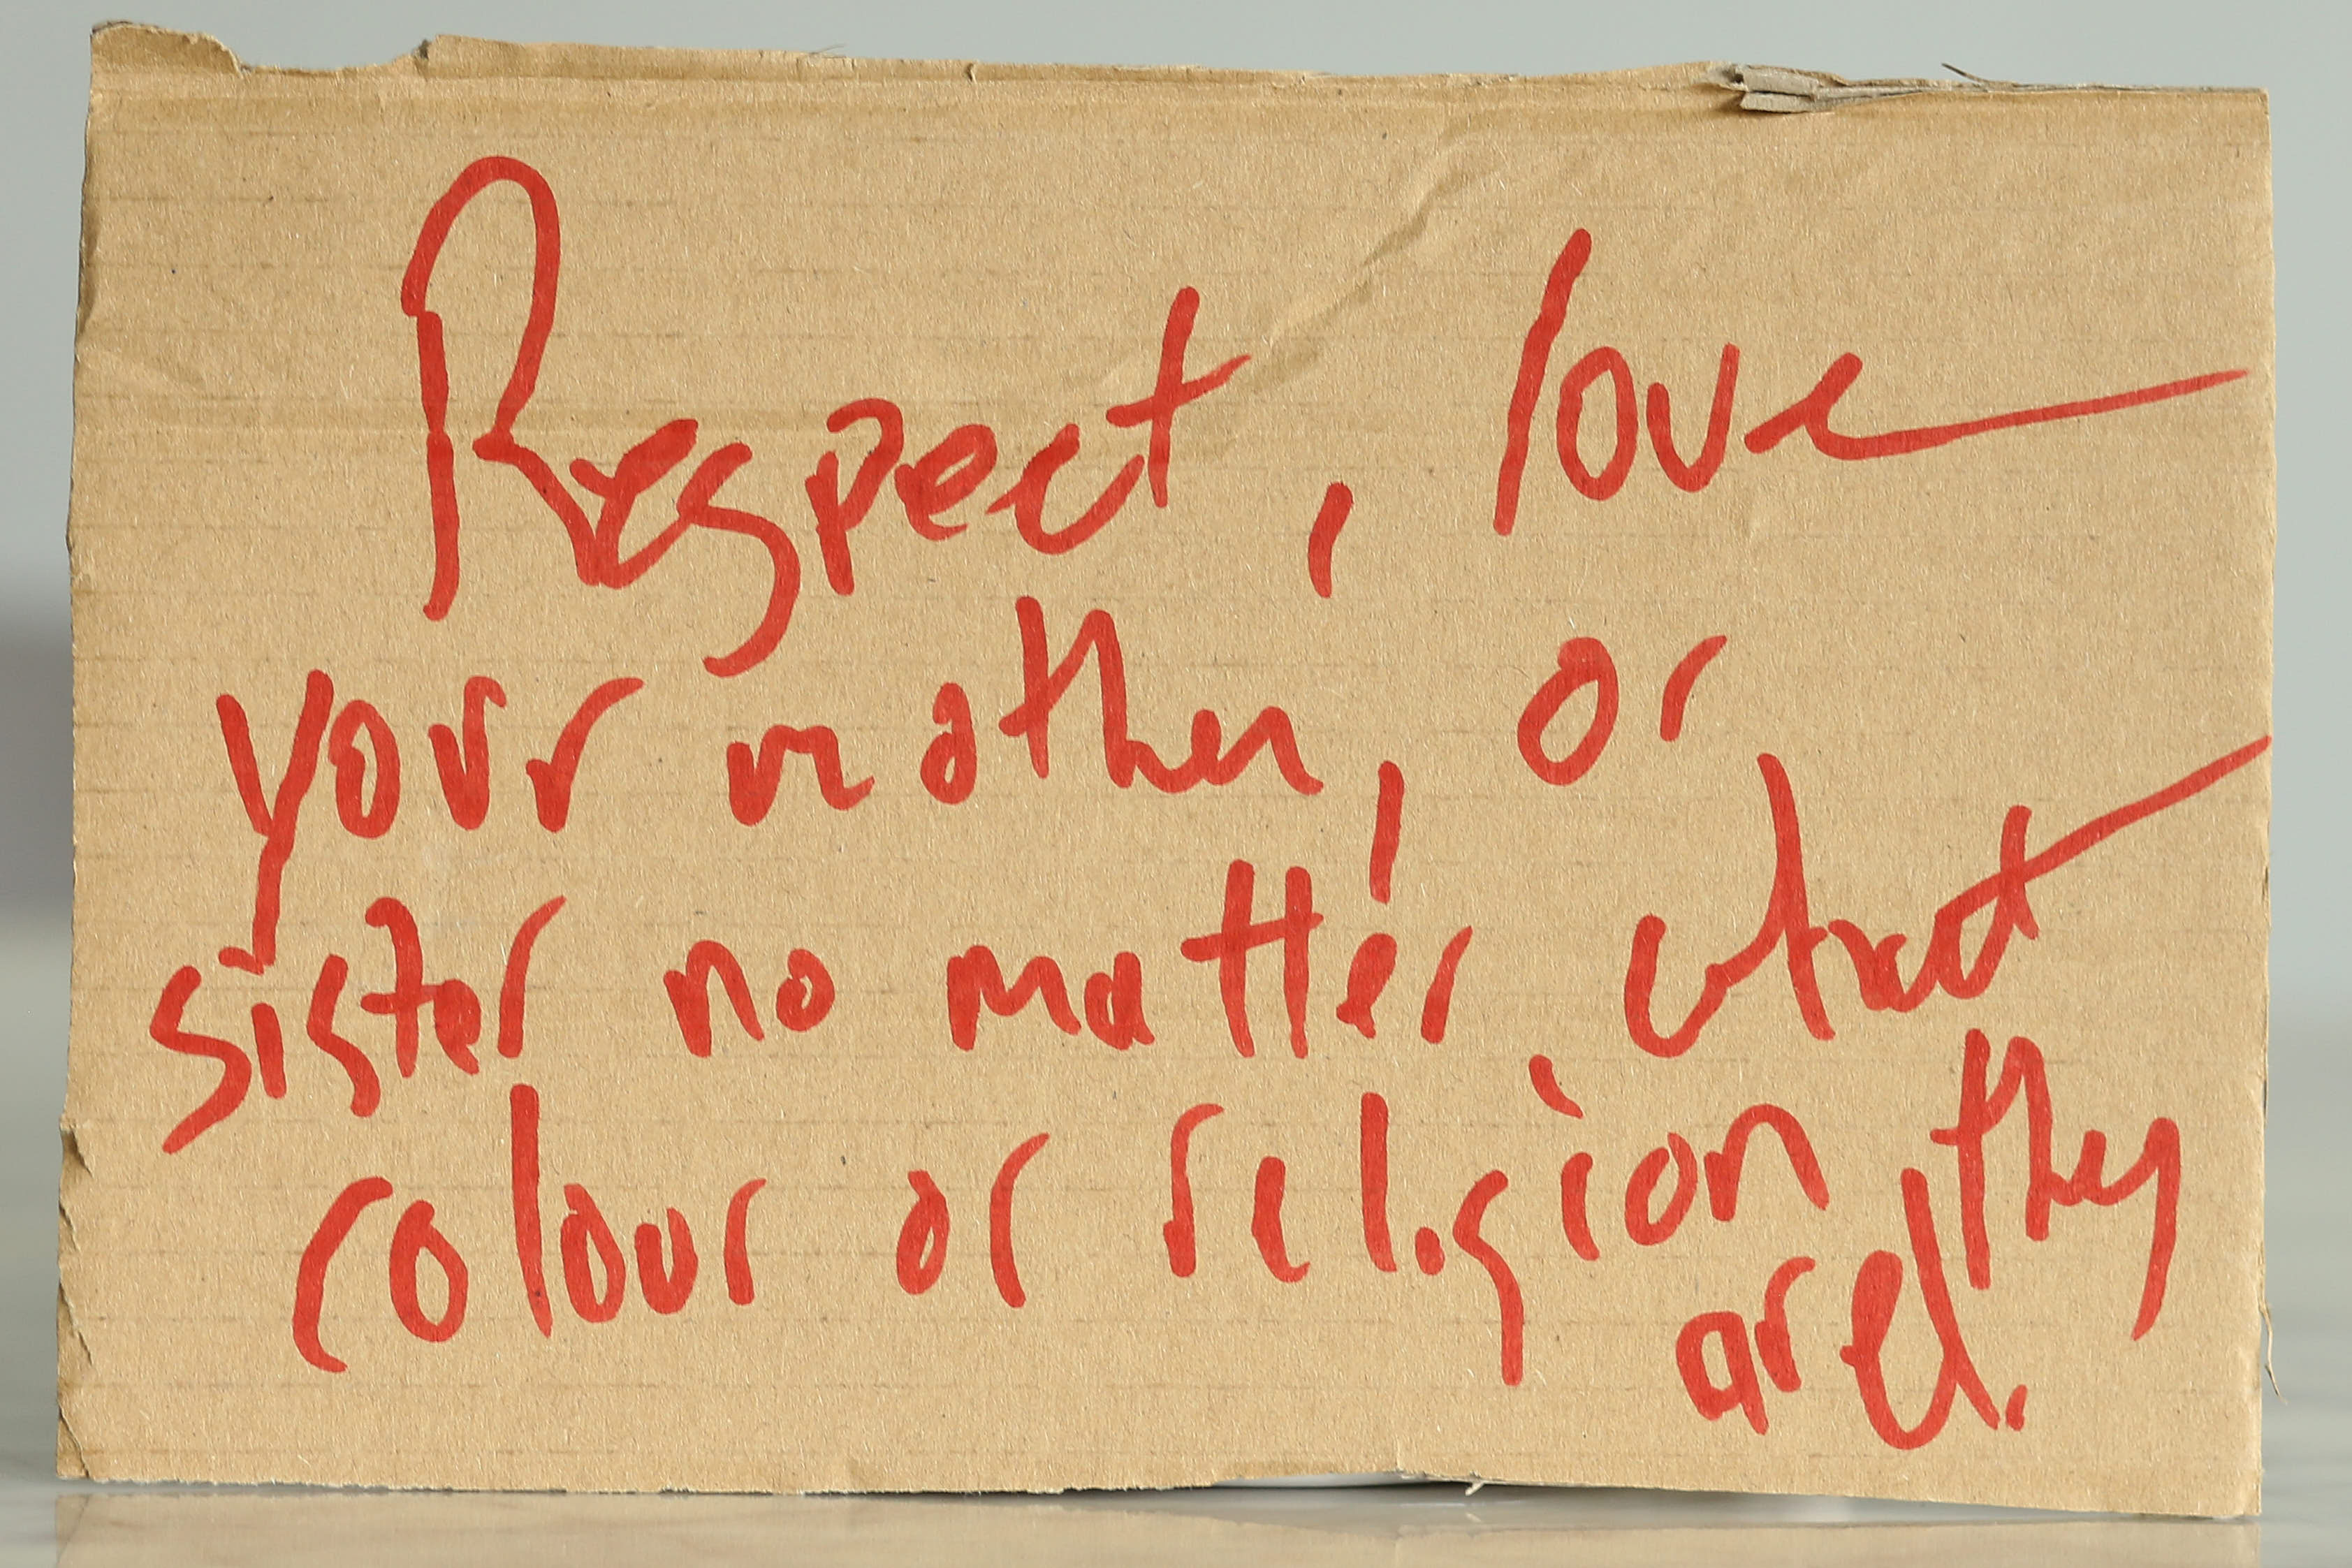 Respect, love
your mother, or
sister no matter, what
colour or religion they
are!.